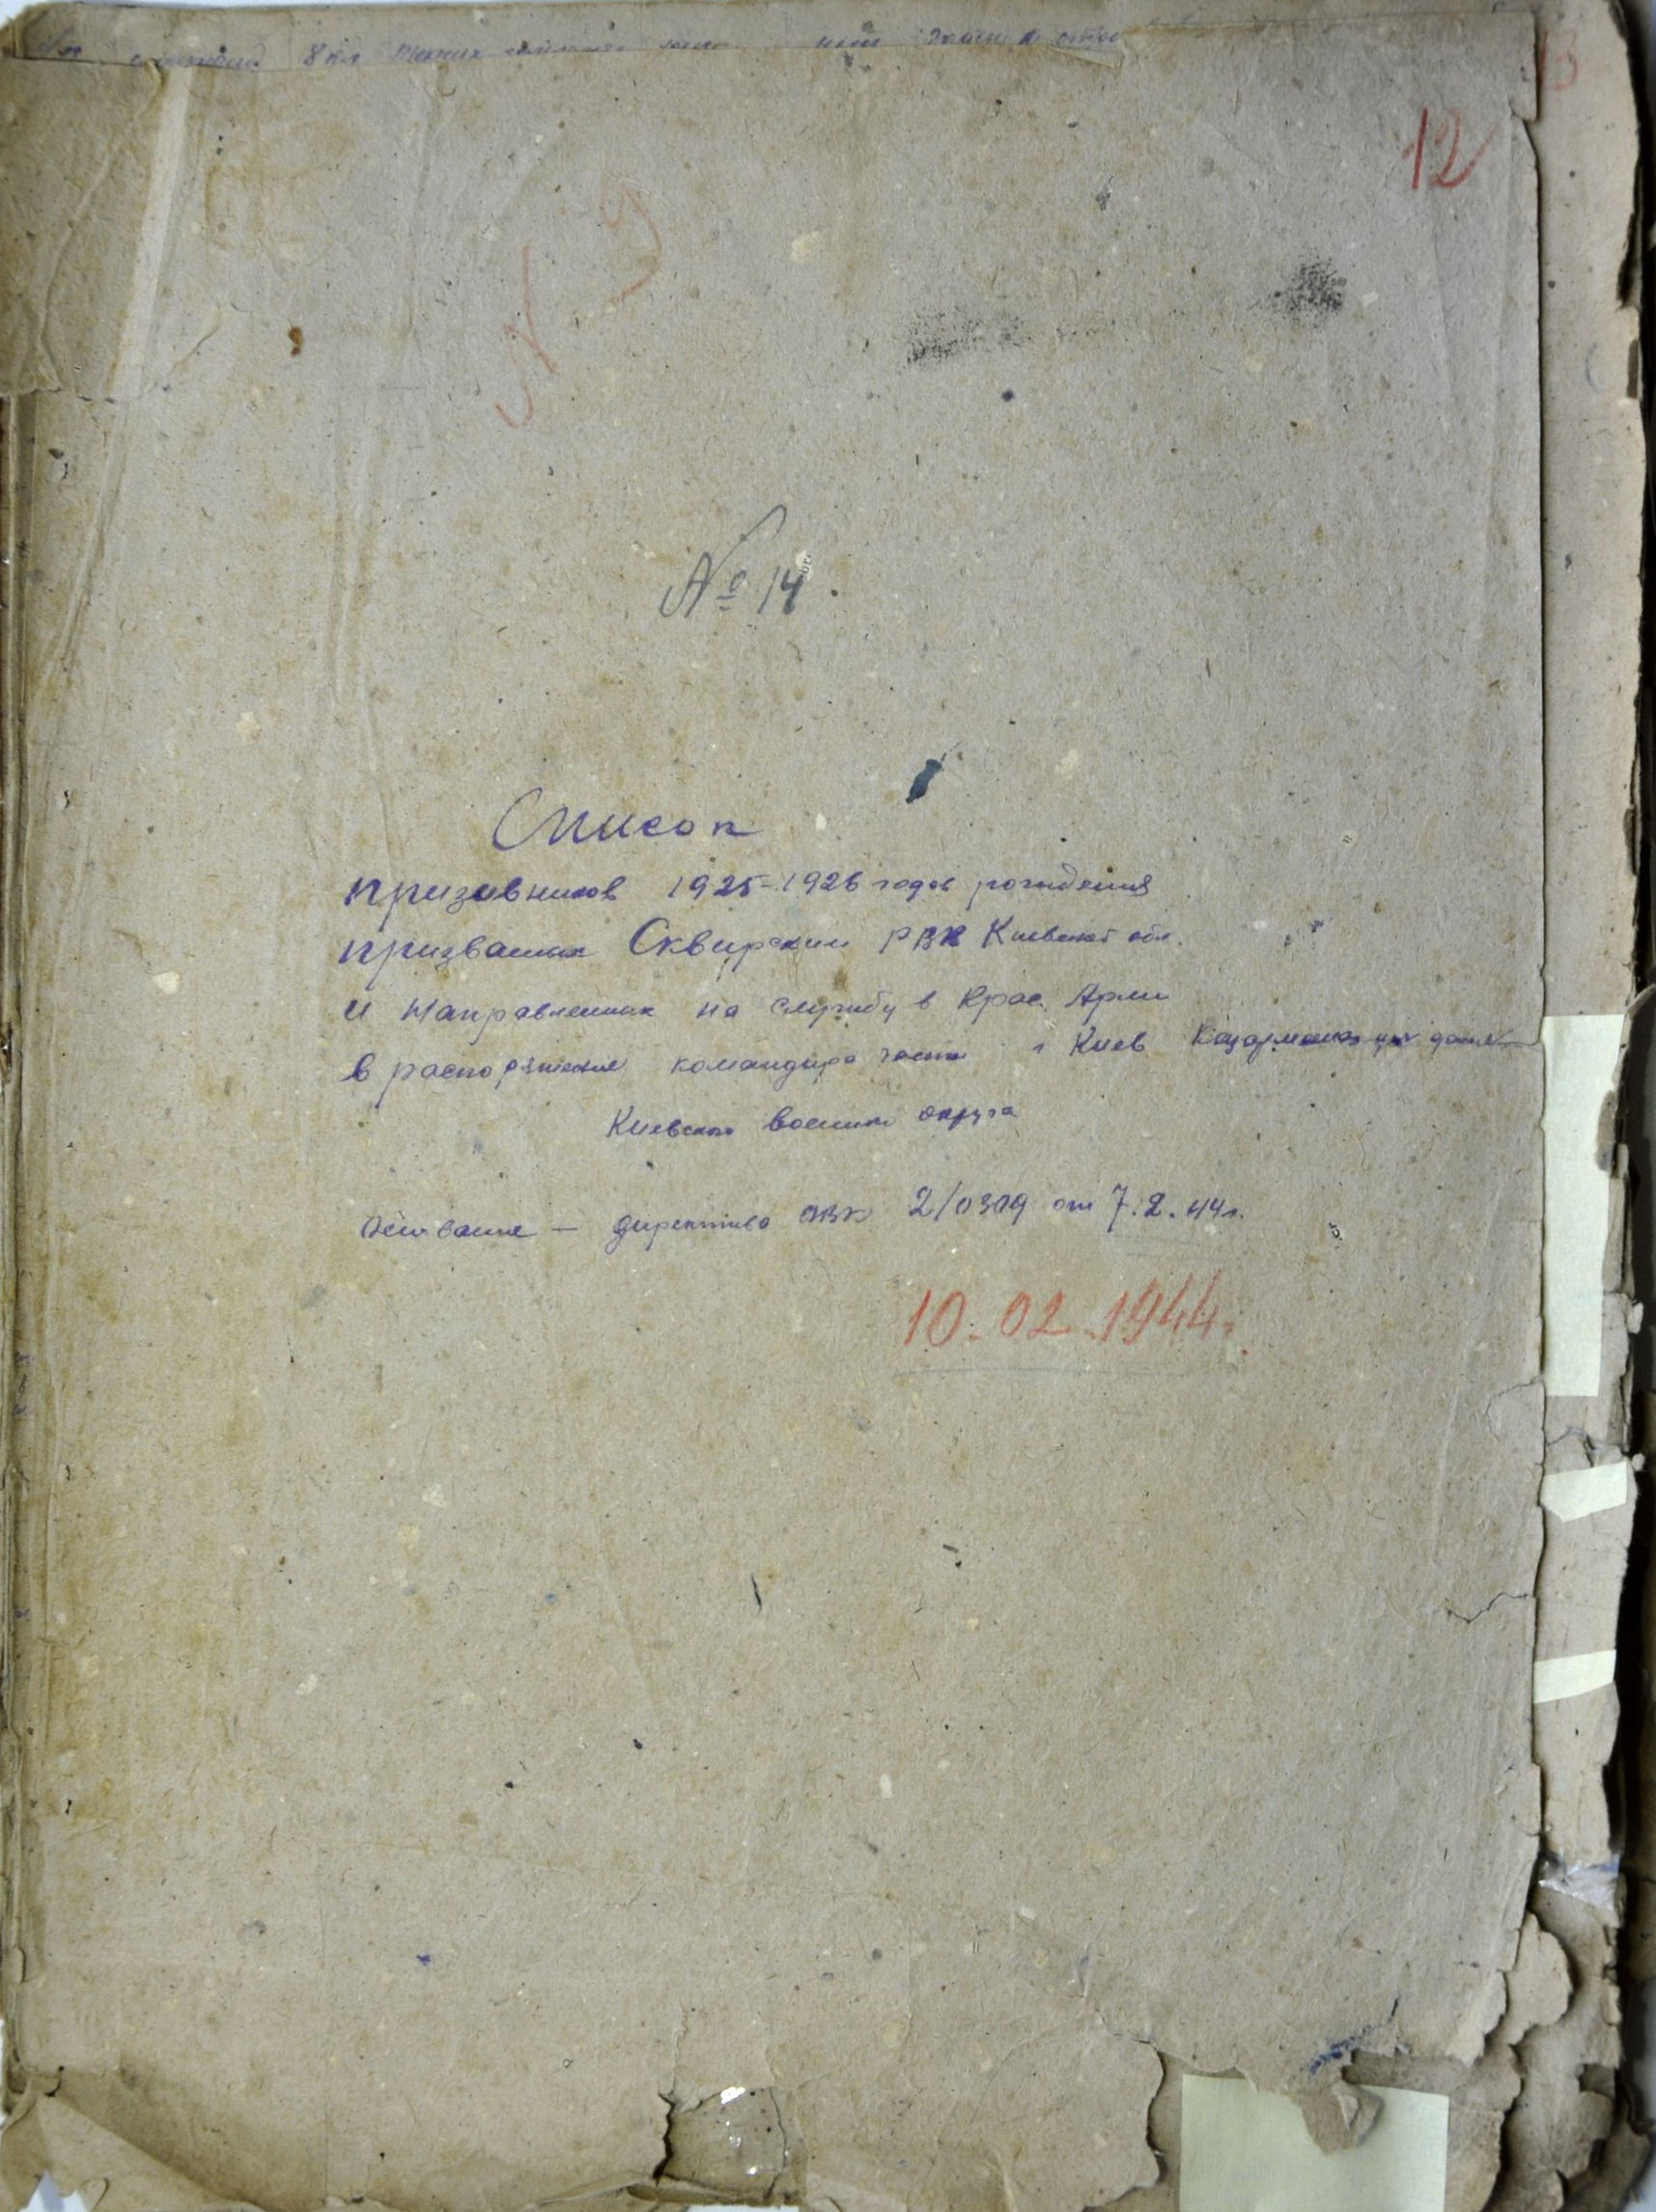 8 кл
12
№ 14.
Список
призывников 1925-1926 годов рождения
призванных Сквирским РВК Киевской обл.
и направленных на службу в Крас. Арми
в распоряжение командира части г Киев
Киевского военного округа
Основание — директива ОВК 2/0309 от 7.2.44г.
10.02.1944.